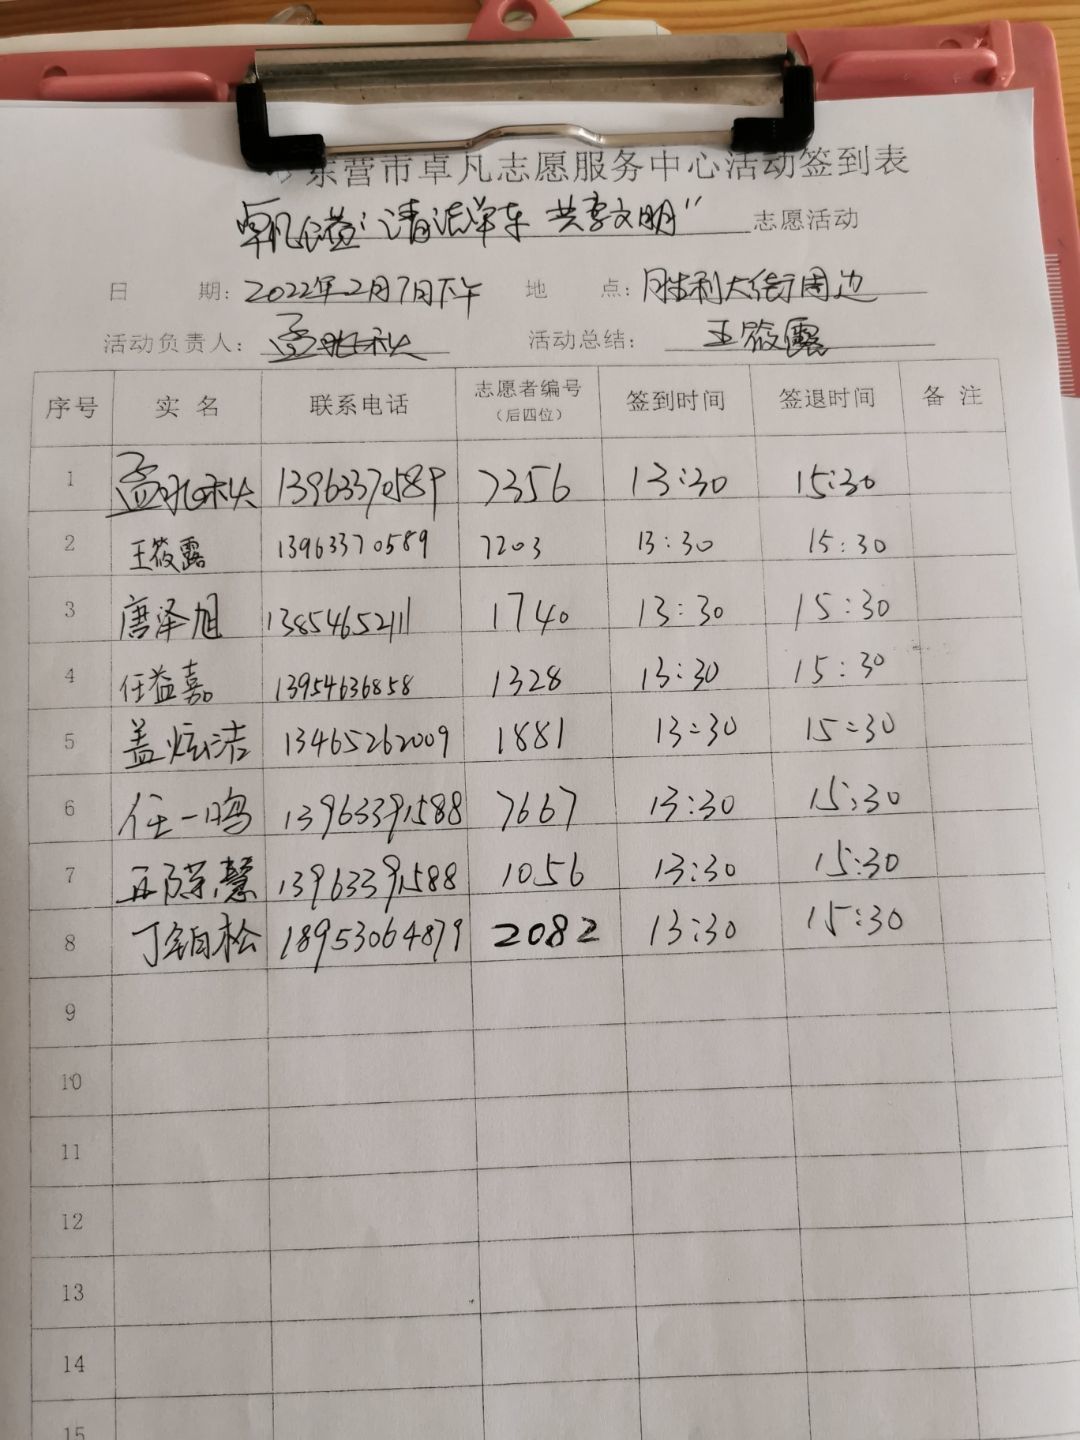 东营市卓凡志愿服务中心活动签到表
卓凡公益“清洁单车 共享文明” 志愿活动
日 期: 2022年2月7日下午 地 点: 胜利大街周边
活动负责人: 活动总结: 王筱露
序号 实名 联系电话 志愿者编号(后四位) 签到时间 签退时间 备注
1 13963370589 7356 13:30 15:30
2 王筱露 13963370589 7203 13:30 15:30
3 唐泽旭 13854652111 1740 13:30 15:30
4 任益嘉 13954636858 1328 13:30 15:30
5 盖炫洁 13465262009 1881 13:30 15:30
6 任一鸣 13963391588 7667 13:30 15:30
7 13963391588 1056 13:30 15:30
8 18953064879 2082 13:30 15:30
9
10
11
12
13
14
15